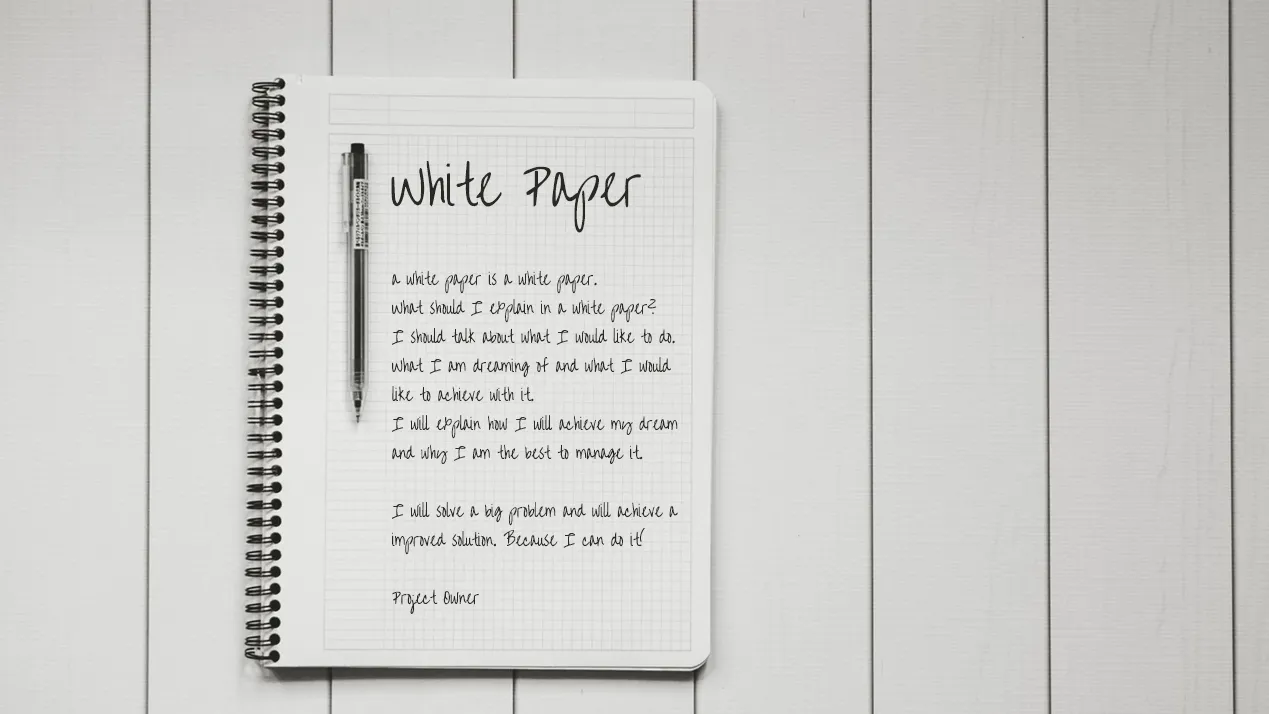 White Paper
a white paper is a white paper.
What should I explain in a white paper?
I should talk about what I would like to do.
What I am dreaming of and what I would
like to achieve with it.
I will explain how I will achieve my dream
and why I am the best to manage it.
I will solve a big problem and will achieve a
improved solution. Because I can do it!
Project Owner